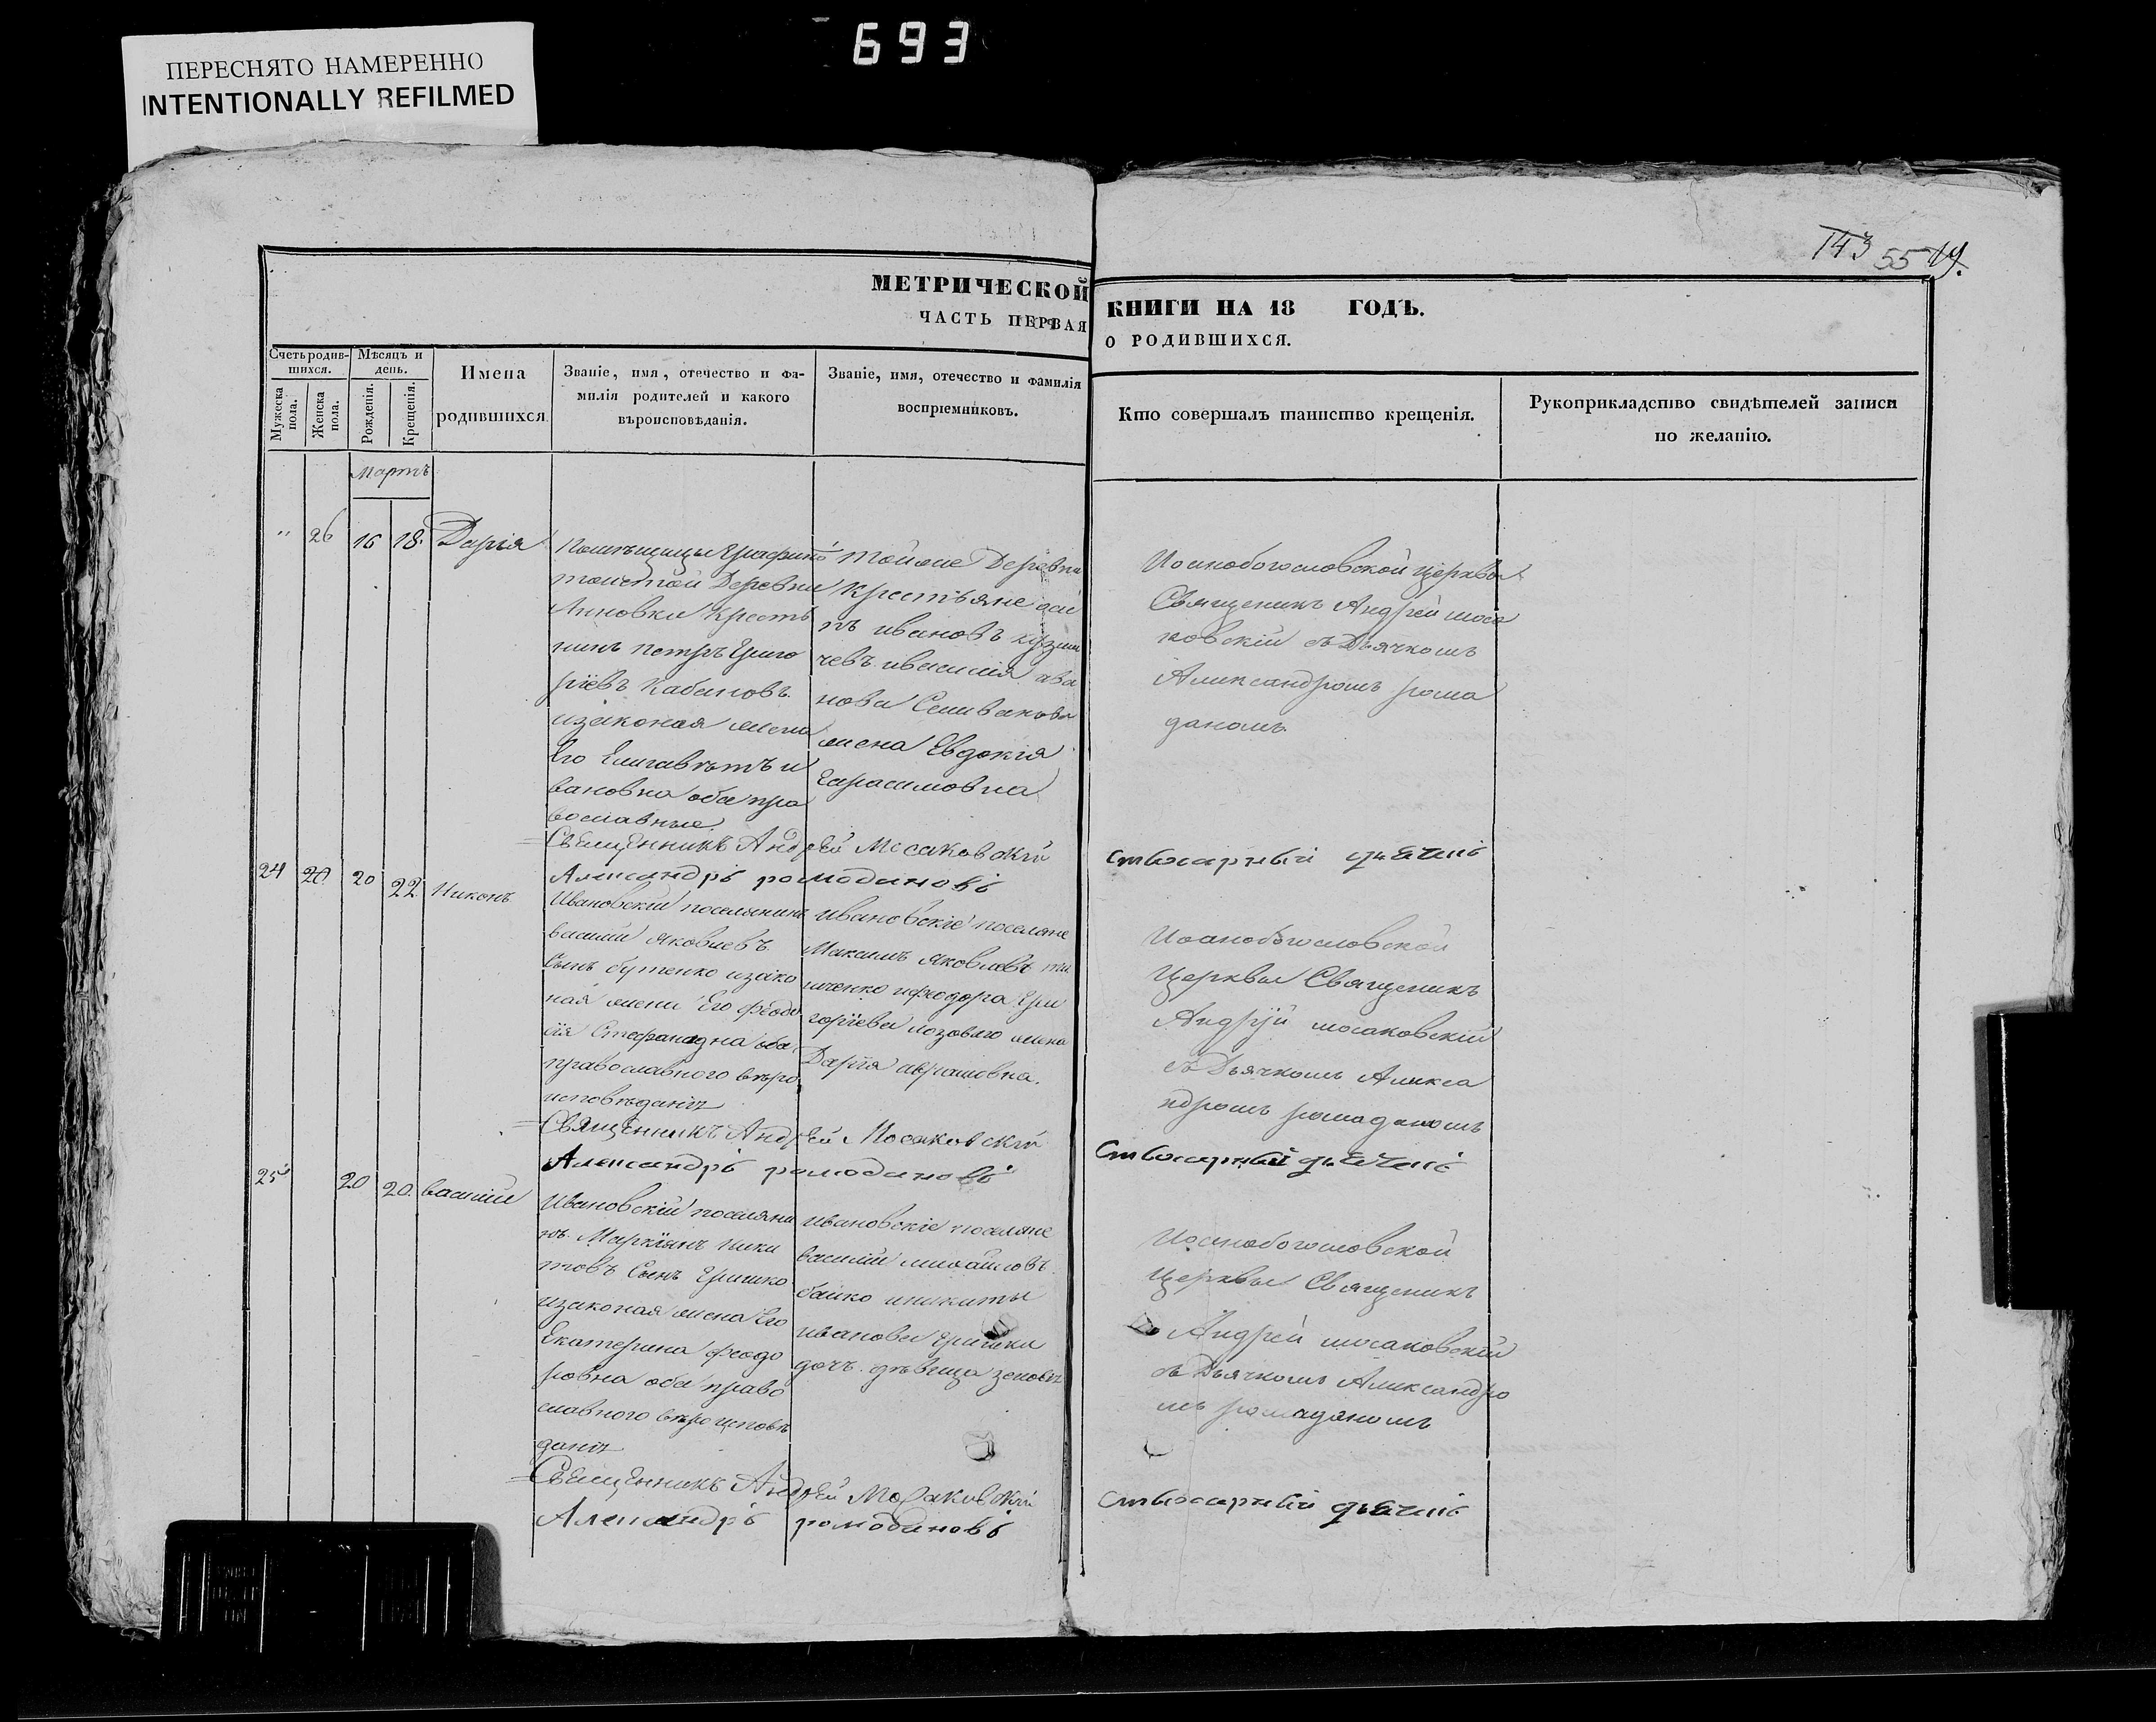 693
ПЕРЕСНЯТО НАМЕРЕННО
INTENTIONALLY REFILMED
143 55 19.
МЕТРИЧЕСКОЙ
ЧАСТЬ ПЕРВАЯ
КНИГИ НА 18 ГОДЪ.
О РОДИВШИХСЯ.
Счетъ родив-
шихся.
Мужеска
пола.
Женска
пола.
Мѣсяцъ и
день.
Рожденія.
Крещенія.
Имена
родившихся
Званіе, имя, отечество и фа-
милія родителей и какого
вѣроисповѣданія.
Званіе, имя, отечество и фамилія
воспріемниковъ.
Кто совершалъ таинство крещенія.
Рукоприкладство свидѣтелей записи
по желанію.
Мартъ
" 26 16 18. Дарія
Помѣщицы Графинѣ
толстой Деревни
Анновки Крестя
нинъ Петръ Григо
ріевъ Кабановъ
изаконая жена
Его Елисаветъ и
вановна оба пра
вославные
Тойже Деревни
Крестьяне оси
пъ ивановъ кузми
чевъ ивасилія ива
нова Селиванова
жена Евдокія
Герасимовна
Иоанобогословской Церквы
Священикъ Андрей моса
ковскій съ Дьячкомъ
Александромъ рома
даномъ
Священникъ Андрей Мосаковский
Александръ ромодановъ
24 20 20 22 Никонъ
Ивановский поселянинъ
василий яковлевъ
Сынъ бутенко изако
ная жена Его феодо
сія Стефановна оба
православного вѣро
исповѣданія
ивановскіе поселяне
Максимъ яковлевъ
ифеодора Гри
горіева лозового жена
Дарія аврамовна.
Иоанобогословской
Церквы Священикъ
Андрій мосаковскій
съ Дьячкомъ Алекса
ндромъ ромаданомъ
Священникъ Андрей Мосаковский
Александръ ромодановъ
25 20 20. василий
Ивановскій поселяни
нъ Маркіянъ Ники
товъ Сынъ Гришко
изаконая жена Его
Екатерина феодо
ровна оба право
славного вѣроисповѣ
данія
ивановскіе поселяне
василий михайловъ
бойко иникиты
иванова Гришка
дочь дѣвица
Иоанобогословской
Церквы Священикъ
Андрей мосаковский
съ Дьячкомъ Александро
мъ ромаданомъ
Священникъ Андрей Мосаковский
Александръ ромодановъ